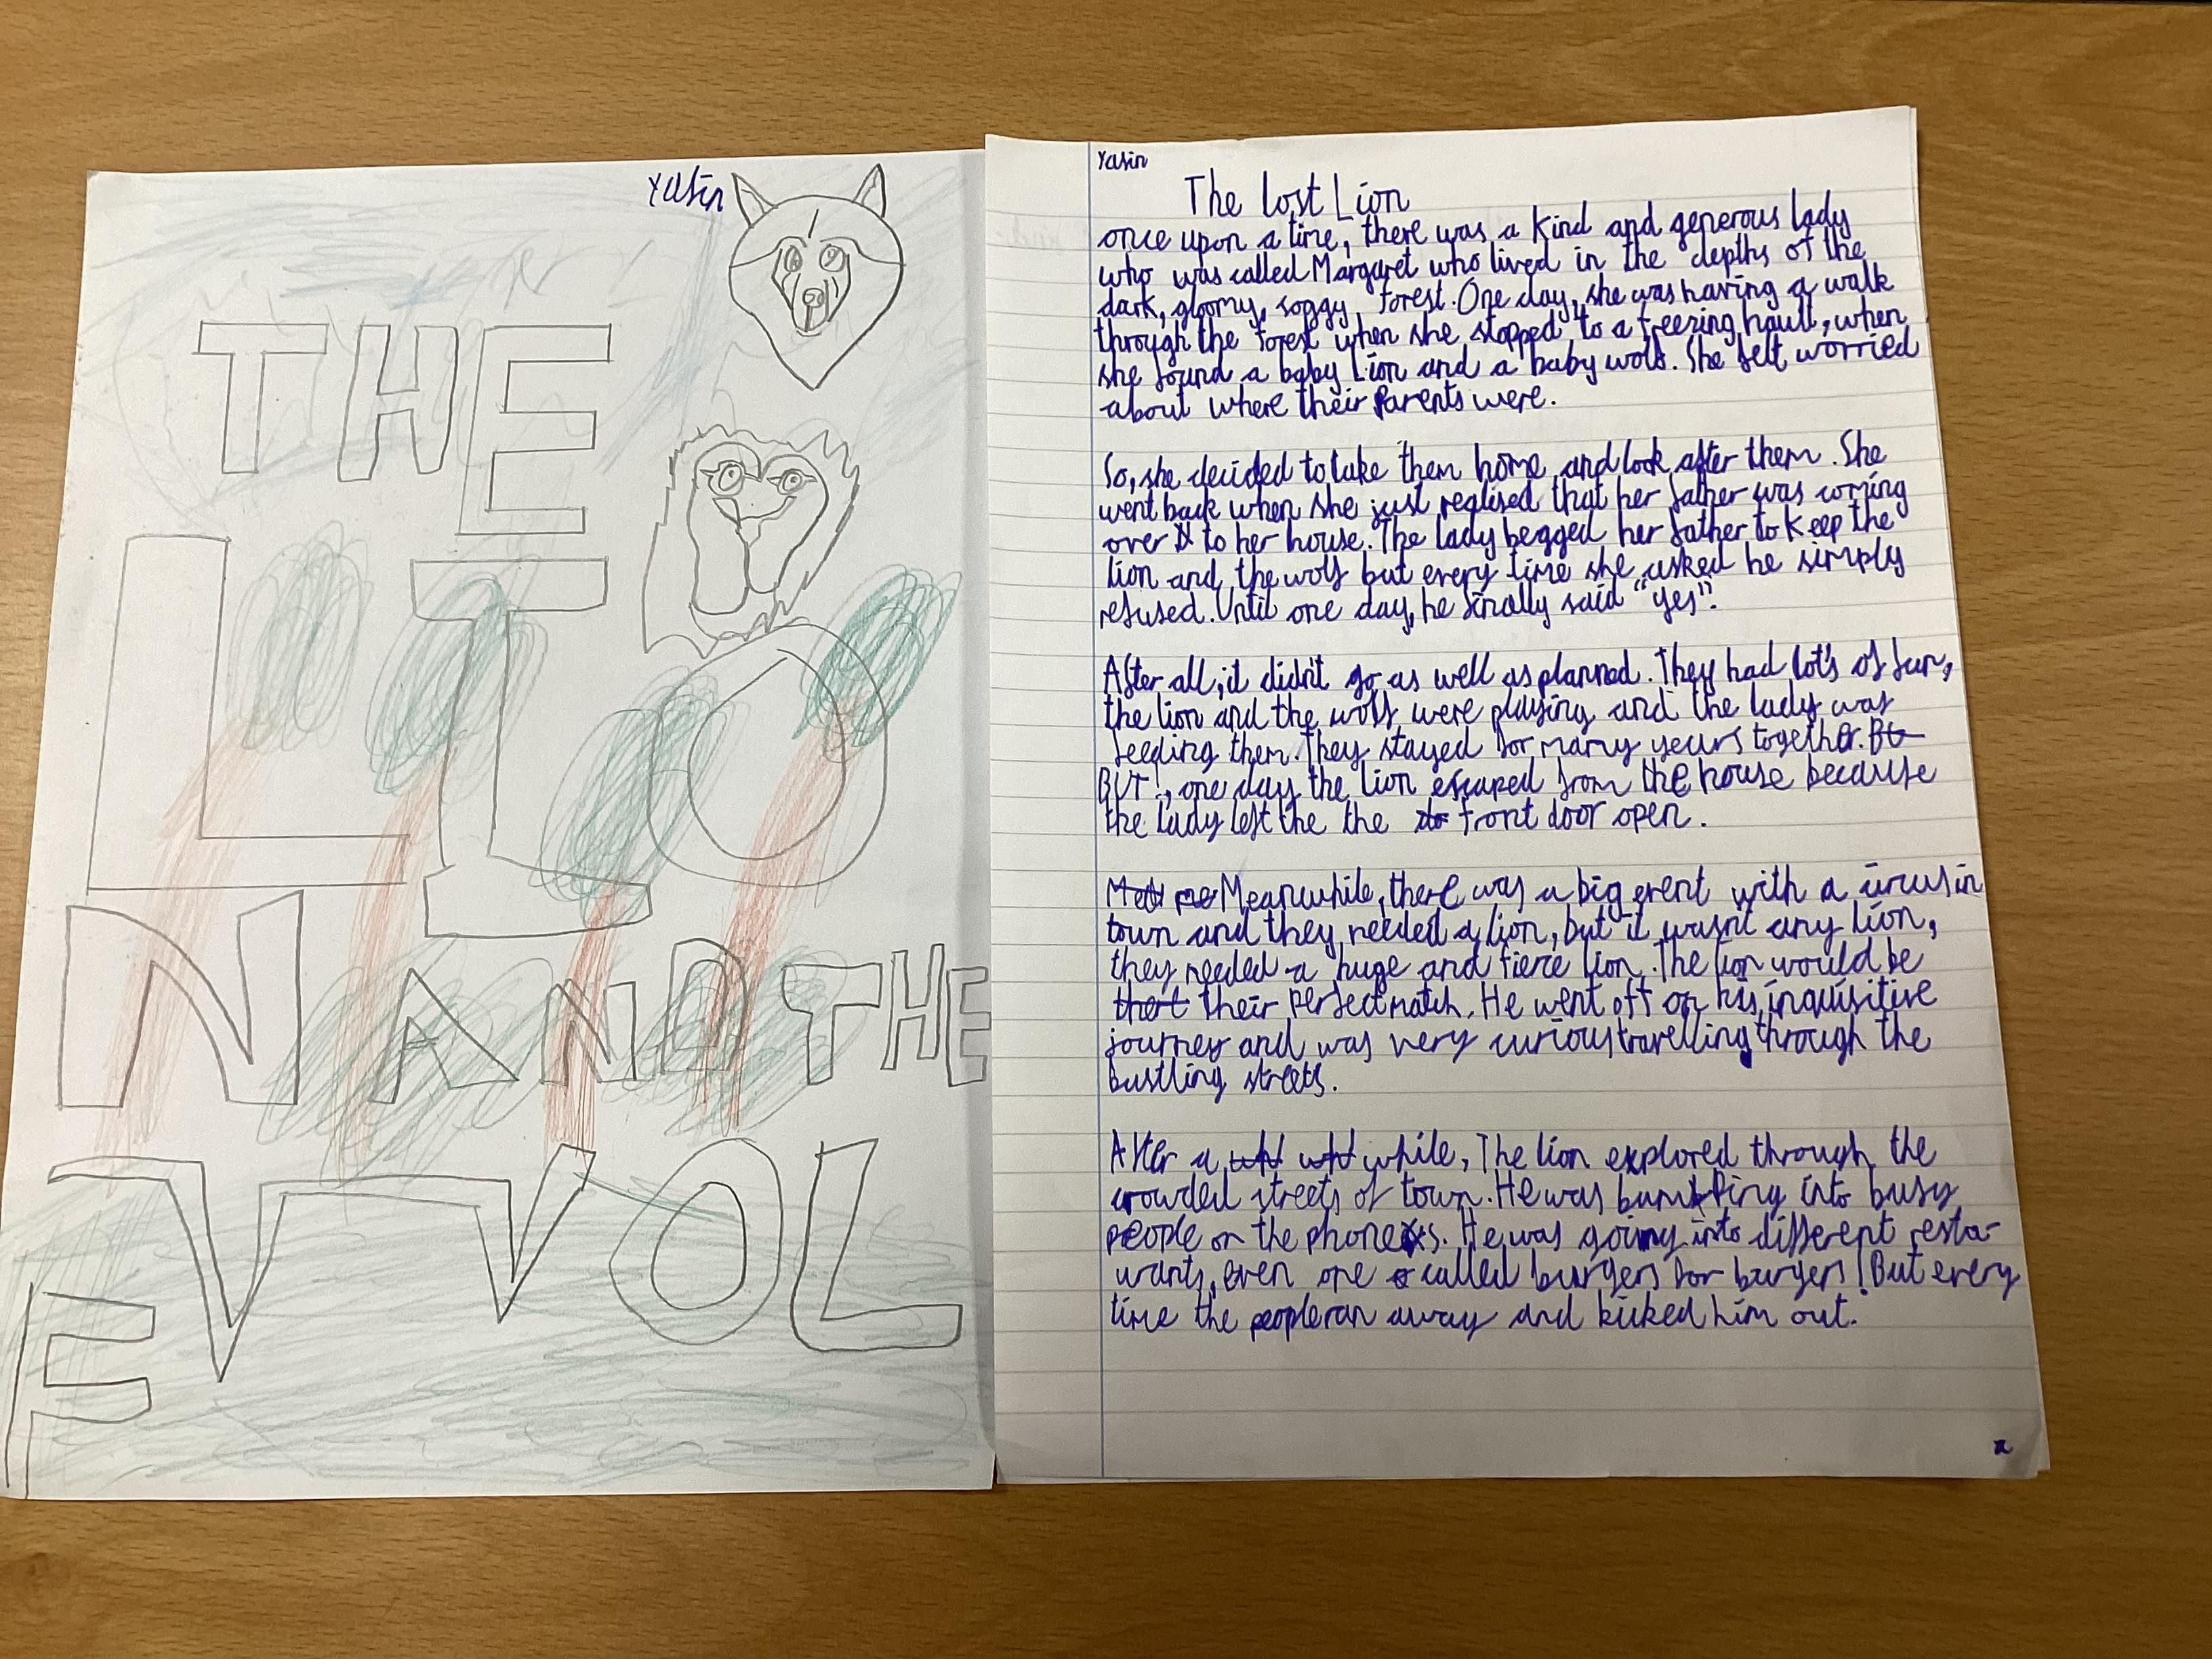 Yasin
THE
LIO
N AND THE
WOL
F
Yasin
The lost Lion
once upon a time, there was a kind and generous lady
who was called Margaret who lived in the depths of the
dark, gloomy, soggy forest. One day, she was having a walk
through the forest when she stopped to a freezing hault, when
she found a baby Lion and a baby wolf. She felt worried
about where their Parents were.
So, she decided to take them home and look after them. She
went back when she just realised that her father was coming
over to her house. The lady begged her father to keep the
lion and the wolf but every time she asked he simply
refused. Until one day, he finally said "yes".
After all, it didn't go as well as planned. They had lot's of fun,
the lion and the wolf were playing and the lady was
feeding them. They stayed for many years together.
BUT!, one day the lion escaped from the house because
the lady left the the front door open.
Meanwhile, there was a big event with a circus in
town and they needed a lion, but it wasn't any lion,
they needed a huge and fierce lion. The lion would be
their perfect match. He went off on his inquisitive
journey and was very curious travelling through the
bustling streets.
After a while, The lion explored through the
crowded streets of town. He was bumping into busy
people on the phones. He was going into different resta-
urants, even one called burgers for burgers! But every
time the people ran away and kicked him out.